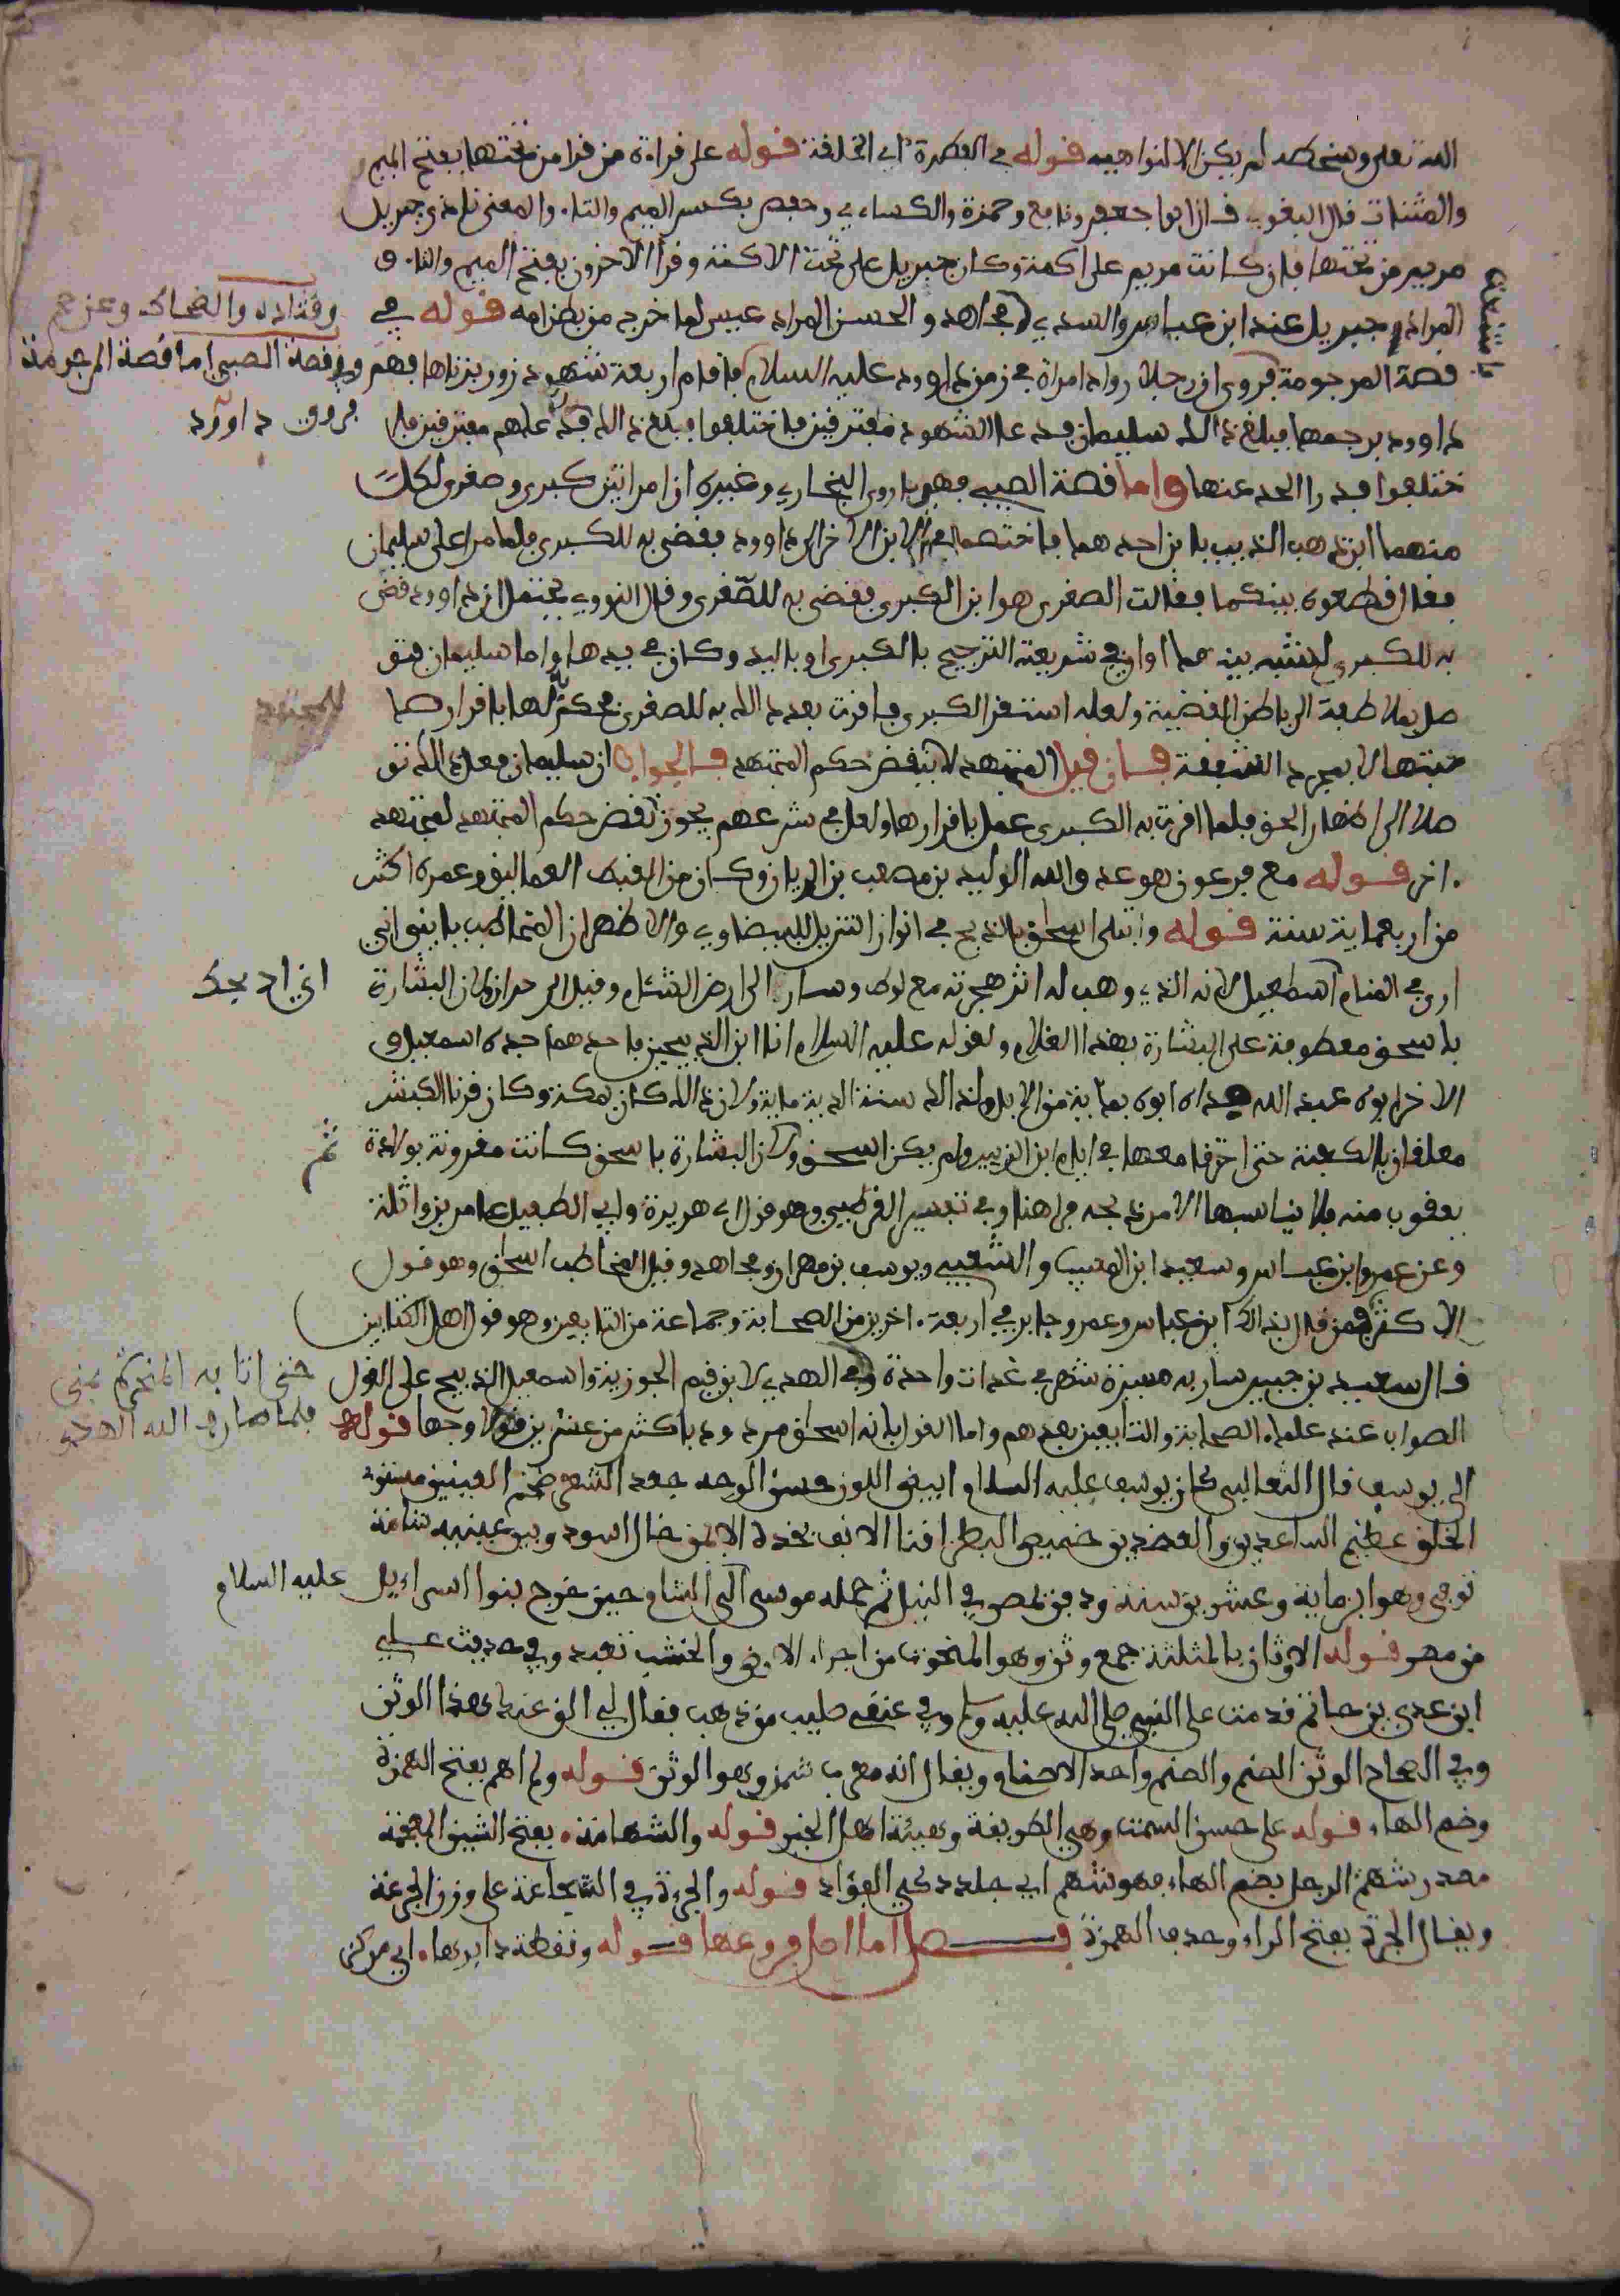 الله تعلى وسخطه لم يكن الا لنواهيه قوله في الفطرة اي الخلقة قوله على قراءة من قرا من تحتها بفتح الميم
والمثنات قال البغوي قرا ابوا جعفر ونافع وحمزة والكساءي وحفص بكسر الميم والتاء والمعنى نادى جبريل
مريم من تحتها فان كانت مريم على اكمة وكان جبريل على تحت الاكمة وقرا الاخرون بفتح الميم والتاء و
المراد جبريل عند ابن عباس والسدي و مجاهد والحسن المراد عيسى لما خرج من بطن امه قوله في
وقتاده والضحاك وعن
قصة المرجومة فروى ان رجلا راود امراة في زمن داوود عليه السلام فاقام اربعة شهود زور بزناها فهم
وقصة الصبي اما قصة المرجومة
فروى داوود
داوود برجمها فبلغ ذالك سليمان فدعا الشهود مفترقين فاختلفوا فبلغ ذالك فدعاهم مفترقين فا
ختلفوا فدرا الحد عنها واما قصة الصبي فهو ما روى البخاري وغيره ان امراتين كبرى وصغرى لكل
منهما ابن ذهب الذيب بابن احدهما فاختصما في الابن الاخر الى داوود فقضى به للكبرى فلما مرا على سليمان
فقال اقطعوه بينكما فقالت الصغرى هو ابن الكبرى فقضى به للصغرى وقال النووي يحتمل ان داوود قضى
به للكبرى لشبه بينهما او ان في شريعته الترجيح بالكبرى او باليد وكان في يدها واما سليمان فتو
صل بملاطفة الى باطن القضية ولعله استقر الكبرى فاقرت بعد ذالك به للصغرى فحكم لها باقرار صا
للمجتهد
حبتها لا بمجرد الشفقة فان قيل المجتهد لا ينقض حكم المجتهد فالجواب ان سليمان فعل ذالك تو
صلا الى اظهار الحق فلما اقرت به الكبرى عمل باقرارها ولعل في شرعهم يجوز نقض حكم المجتهد لمجتهد
اخر قوله مع فرعون هو عدو الله الوليد بن مصعب بن الريان وكان من القبط العماليق وعمره اكثر
من اربعماية سنة قوله وابتلى اسحاق بالذبح في انوار التنزيل للبيضاوي والاظهر ان المخاطب يا بني اني
ارى في المنام اسمعيل لانه الذي وهب له اثر هجرته مع لوط وسار الى ارض الشام وقيل الى حران ولان البشارة
اني اذبحك
باسحق معطوفة على البشارة بهذا الغلام ولقوله عليه السلام انا ابن الذبيحين فاحدهما جده اسمعيل و
الاخر ابوه عبد الله فداه ابوه بماية من الابل ولذالك سنت الدية ماية ولان ذالك كان بمكة وكان قرنا الكبش
معلقان بالكعبة حتى احترقا معها في ايام ابن الزبير ولم يكن اسحق ولان البشارة باسحق كانت مقرونة بولادة
ثم
يعقوب منه فلا يناسبها الامر بذبحه مراهقا وفي تفسير القرطبي وهو قول ابي هريرة وابي الطفيل عامر بن واثلة
وعن عمر وابن عباس وسعيد ابن المسيب والشعبي ويوسف بن مهران ومجاهد وقيل المخاطب اسحاق وهو قول
الاكثر فمن قال بذالك ابن عباس وعمر وجابر في اربعة اخرين من الصحابة وجماعة من التابعين وهو قول اهل الكتابين
قال سعيد بن جبير سار به مسيرة شهر في غدات واحدة وفي الهدي لابن قيم الجوزية واسمعيل الذبيح على القول
حتى اتا به المنحر بمنى
الصواب عند علماء الصحابة والتابعين بعدهم واما القول بانه اسحاق مردود باكثر من عشرين وجها قوله
فلما صرف الله
الى يوسف قال الثعالبي كان يوسف عليه السلام ابيض اللون حسن الوجه جعد الشعر ضخم العينين مستوى
الخلق عظيم الساعدين والعضدين خميص البطن اقنا الانف بخده الايمن خال اسود وبين عينيه شامة
توفي وهو ابن ماية وعشرين سنة ودفن بمصر في النيل ثم حمله موسى الى الشام حين خرج بنوا اسراءيل
عليه السلام
من مصر قوله الاوثان بالمثلثة جمع وثن وهو المنحوت من اجزاء الارض والخشب تعبد وفي حديث على
ابن عدي بن حاتم قدمت على النبي صلى الله عليه وسلم وفي عنقي صليب من ذهب فقال لي الق عنك هذا الوثن
وفي الصحاح الوثن الصنم والصنم واحد الاصنام ويقال انه معرب شمن وهو الوثن قوله ولم اهم بفتح الهمزة
وضم الهاء قوله على حسن السمت وهي الطريقة وهيئة اهل الخير قوله والشهامة بفتح الشين المعجمة
مصدر شهم الرجل بضم الهاء فهو شهم اي جلد ذكي الفؤاد قوله والجرءة في الشجاعة على وزن الجرعة
ويقال الجرة بفتح الراء وحذف الهمزة فصل اما اصل فروعها قوله ونقطة دايرها اي مركز